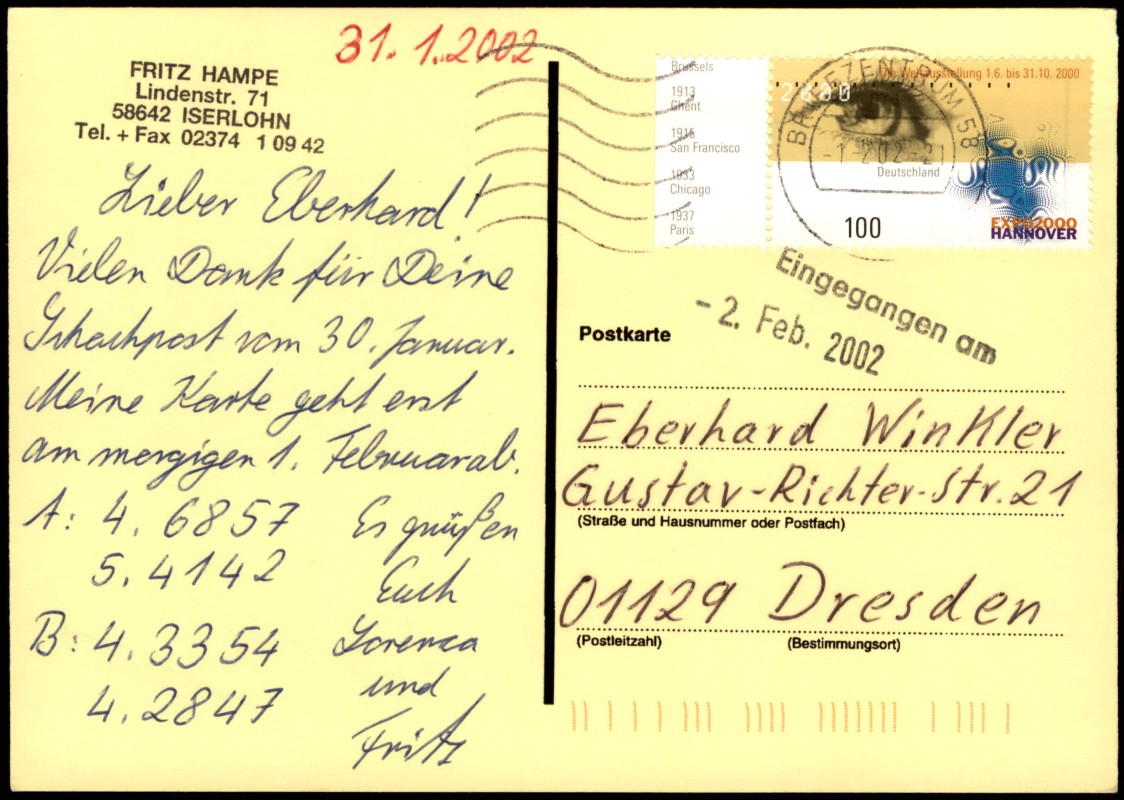 31. 1. 2002
FRITZ HAMPE
Lindenstr. 71
58642 ISERLOHN
Tel. + Fax 02374 1 09 42
Lieber Eberhard!
Vielen Dank für Deine
Schachpost vom 30. Januar.
Meine Karte geht erst
am morgigen 1. Februar ab.
A: 4. 6857
5. 4142
B: 4. 3354
4. 2847
Es grüßen
Euch
Lorenca
und
Fritz
Brussels
1913
Ghent
1915
San Francisco
1933
Chicago
1937
Paris
Die Weltausstellung 1.6. bis 31.10. 2000
2000
Deutschland
100
EXPO2000
HANNOVER
BRIEFZENTRUM 58
Eingegangen am
- 2. Feb. 2002
Postkarte
Eberhard Winkler
Gustav-Richter-Str. 21
(Straße und Hausnummer oder Postfach)
01129 Dresden
(Postleitzahl) (Bestimmungsort)